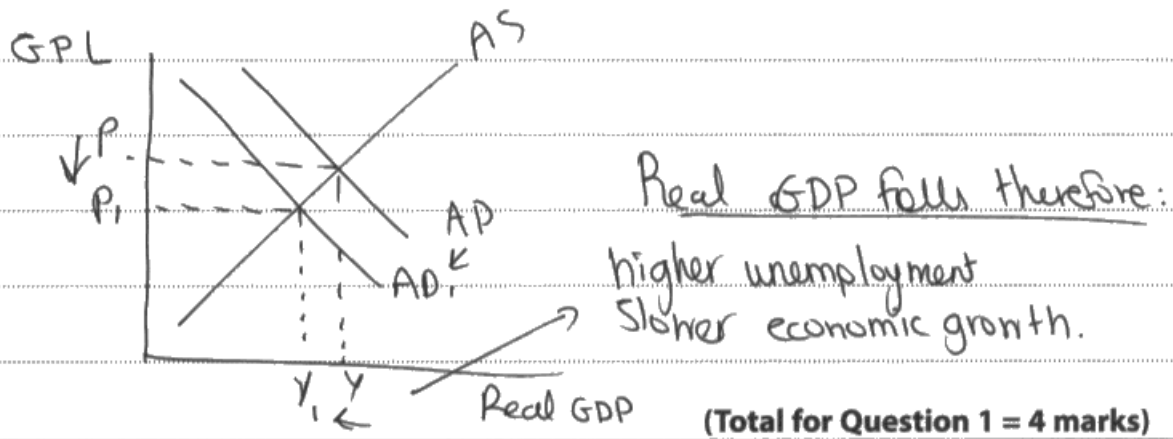 GPL
AS
P
P₁
AD
AD₁
Real GDP falls therefore:
higher unemployment
Slower economic growth.
Y₁ Y
Real GDP
(Total for Question 1 = 4 marks)